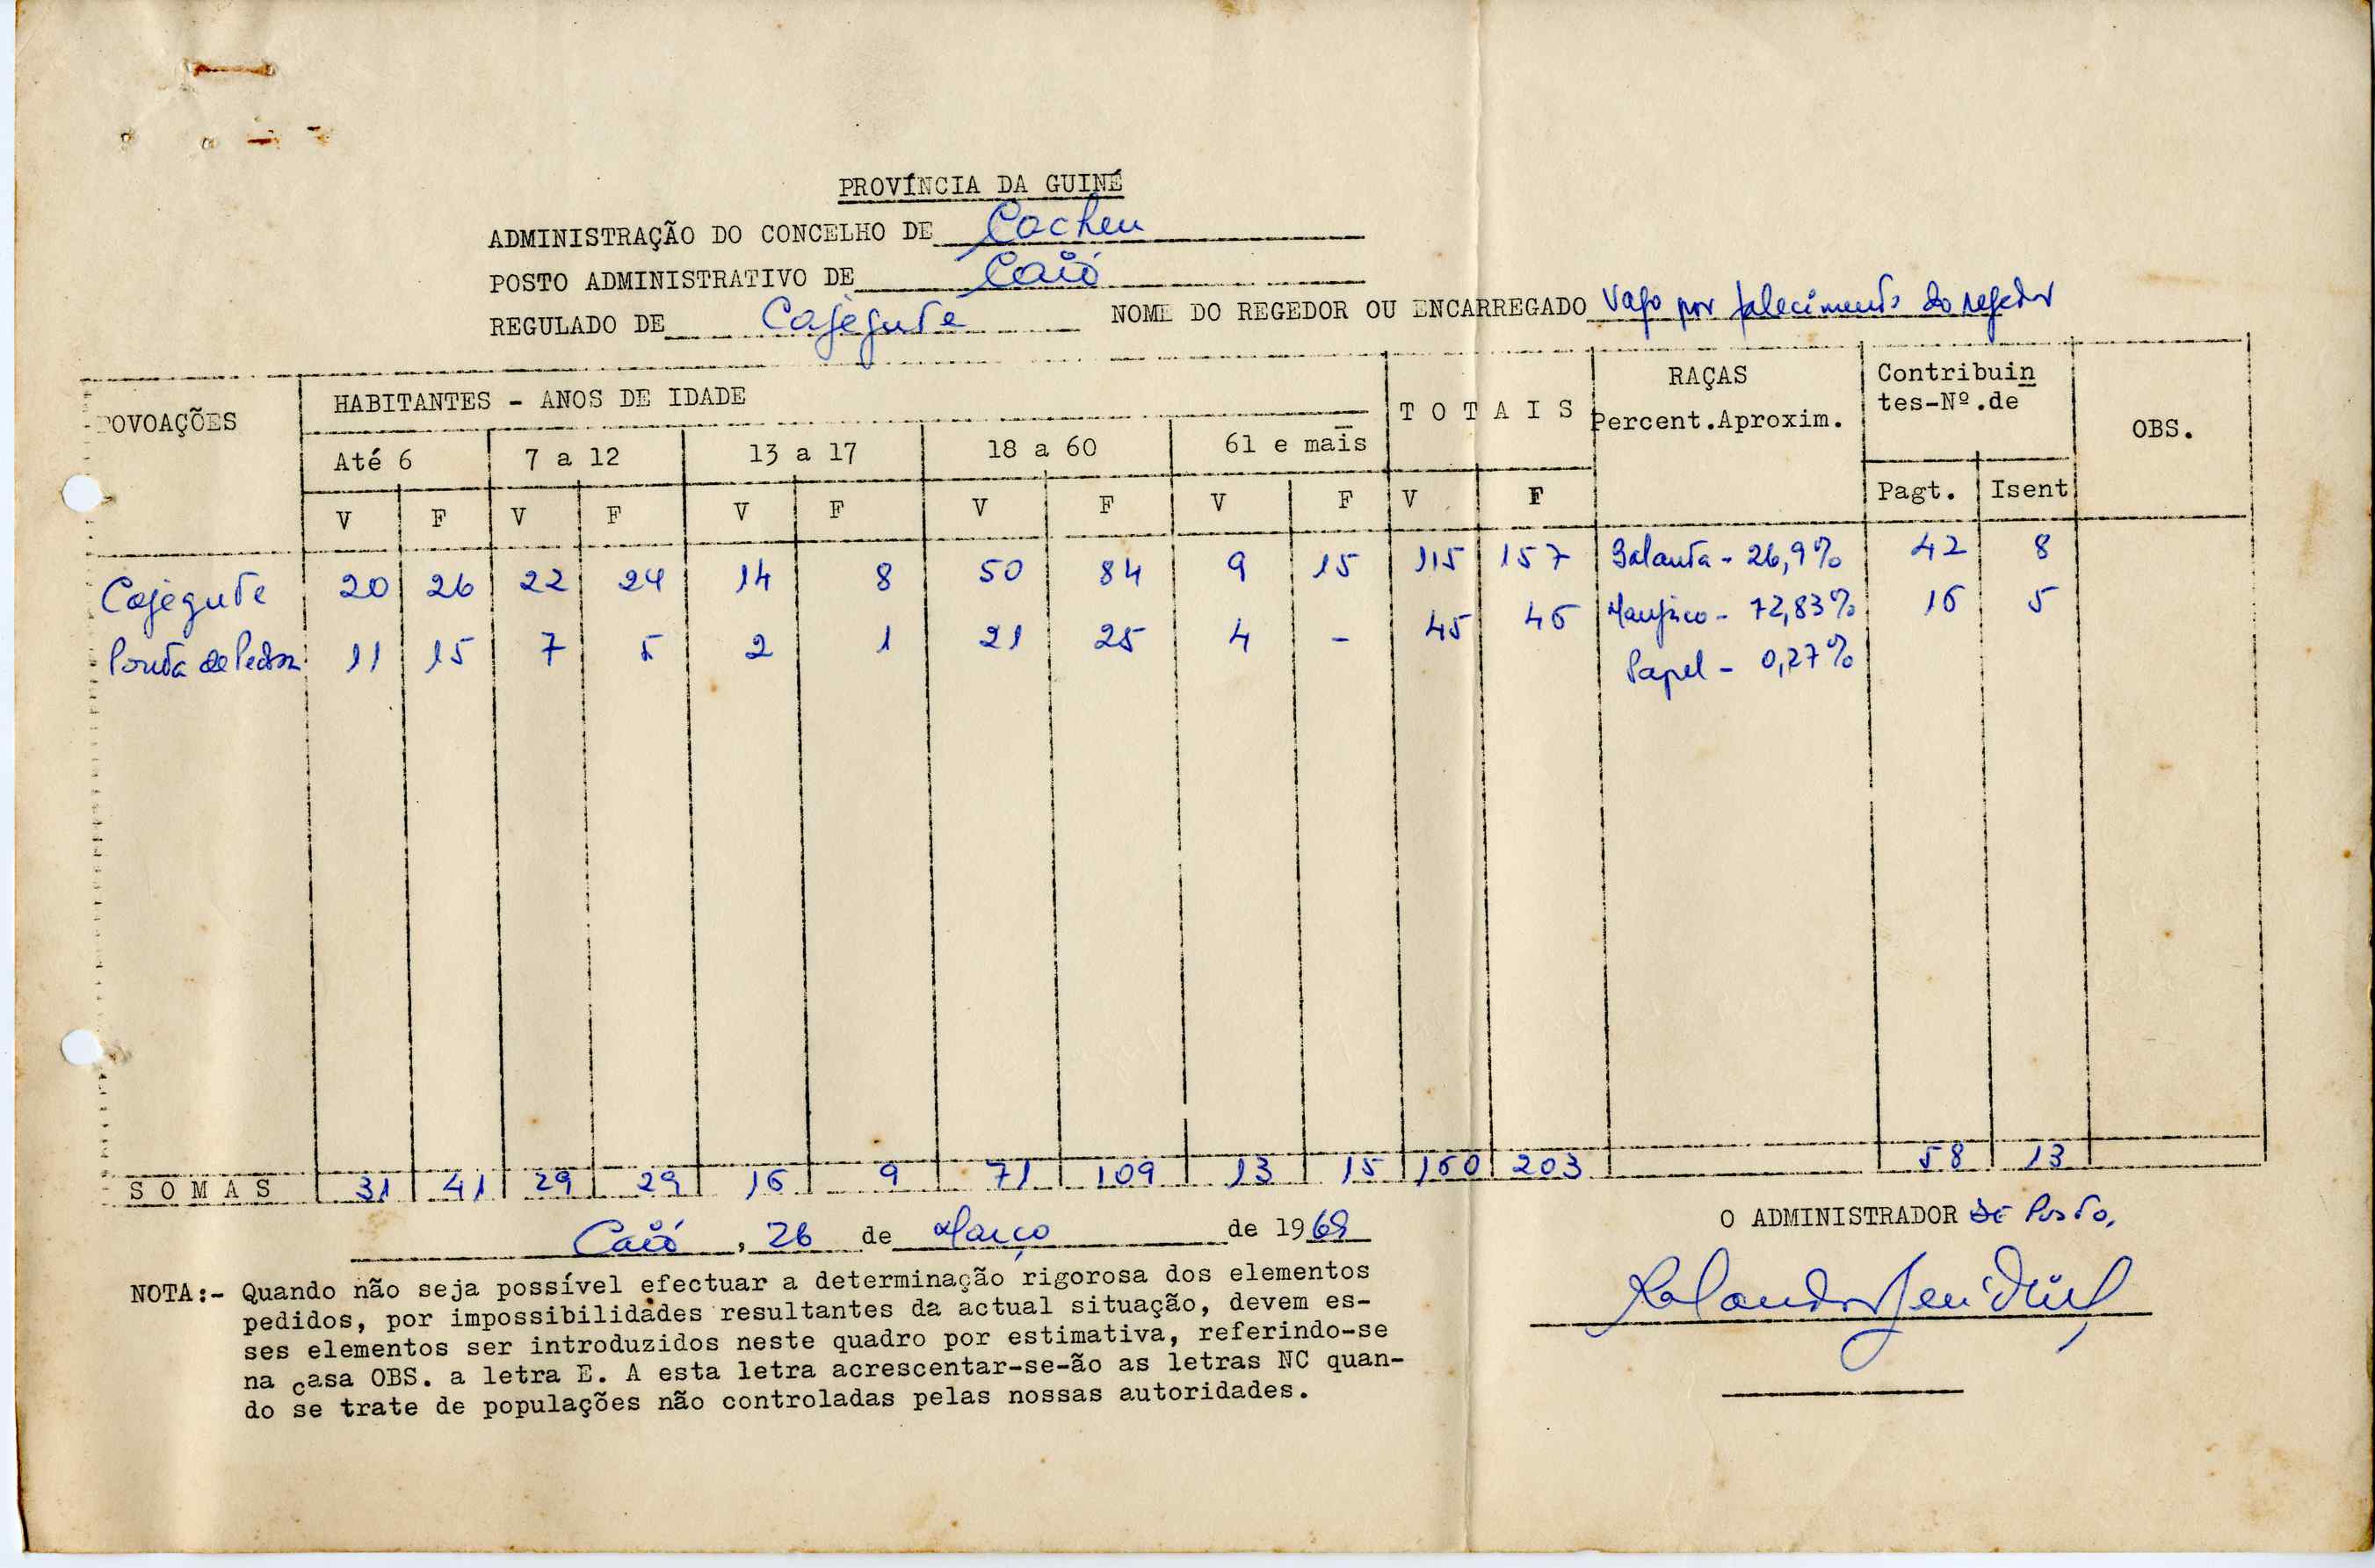 PROVÍNCIA DA GUINÉ
ADMINISTRAÇÃO DO CONCELHO DE Cacheu
POSTO ADMINISTRATIVO DE Caió
REGULADO DE Cajegute NOME DO REGEDOR OU ENCARREGADO Vago por falecimento do regedor
POVOAÇÕES HABITANTES - ANOS DE IDADE T O T A I S RAÇAS Percent.Aproxim. Contribuin tes-Nº.de OBS.
Até 6 7 a 12 13 a 17 18 a 60 61 e mais
V F V F V F V F V F V F Pagt. Isent
Cajegute 20 26 22 24 14 8 50 84 9 15 115 157 Balanta - 26,9% 42 8
Ponta de Pedra 11 15 7 5 2 1 21 25 4 - 45 46 Manjaco - 72,83% 16 5
Papel - 0,27%
S O M A S 31 41 29 29 16 9 71 109 13 15 160 203 58 13
Caió, 26 de Março de 1969
O ADMINISTRADOR DE Posto,
NOTA:- Quando não seja possível efectuar a determinação rigorosa dos elementos
pedidos, por impossibilidades resultantes da actual situação, devem es-
ses elementos ser introduzidos neste quadro por estimativa, referindo-se
na casa OBS. a letra E. A esta letra acrescentar-se-ão as letras NC quan-
do se trate de populações não controladas pelas nossas autoridades.